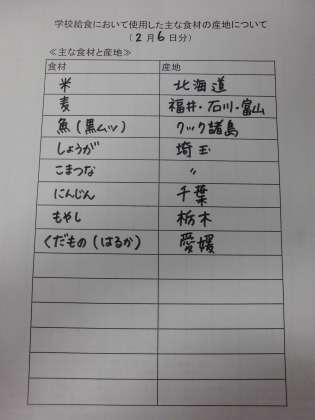 学校給食において使用した主な食材の産地について
(2月6日分)
≪主な食材と産地≫
食材 産地
米 北海道
麦 福井・石川・富山
魚(黒ムツ) クック諸島
しょうが 埼玉
こまつな 〃
にんじん 千葉
もやし 栃木
くだもの(はるか) 愛媛